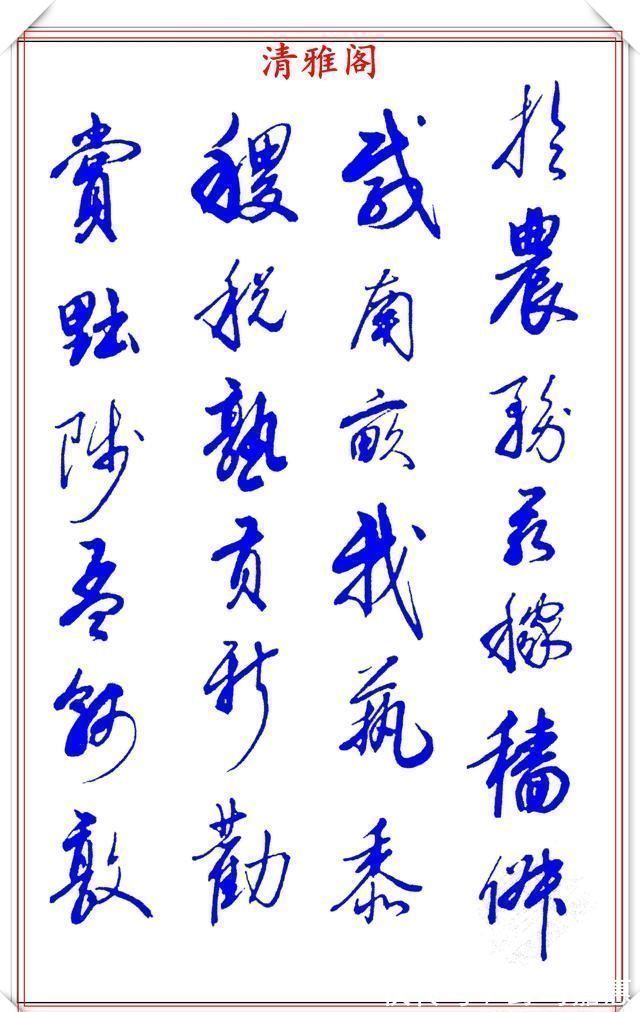 清雅阁
於農務兹稼穡俶
載南畝我蓺黍
稷税熟貢新勸
賞黜陟孟軻敦